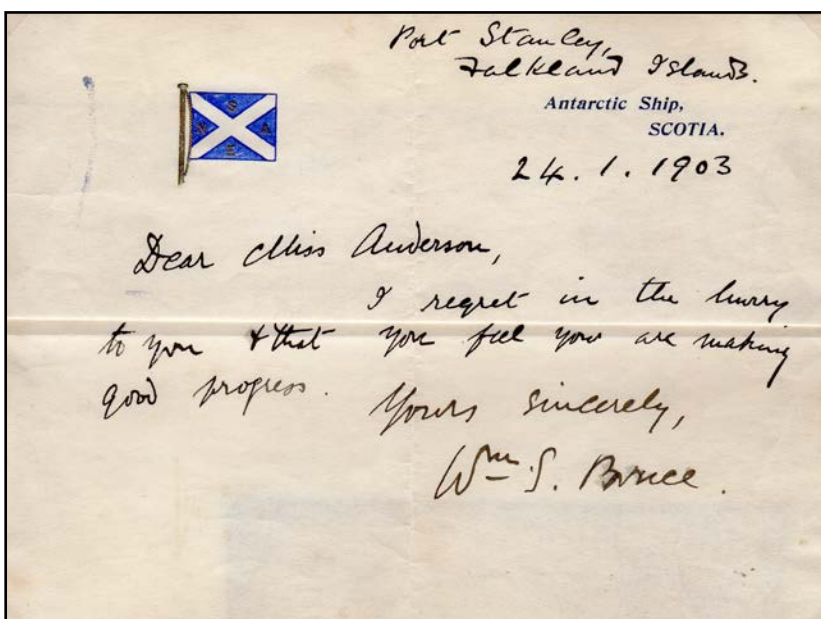 Port Stanley,
Falkland Islands.
Antarctic Ship,
SCOTIA.
S
N A
E
24.1.1903
Dear Miss Anderson,
I regret in the hurry
to you & that you feel you are making
good progress.
Yours sincerely,
Wm S. Bruce.